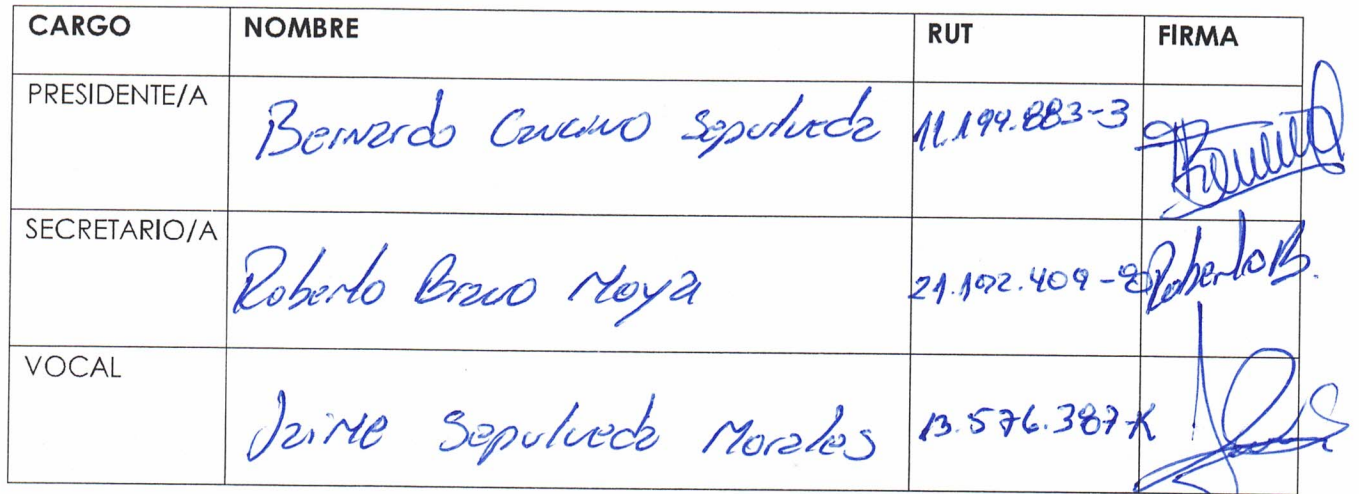 CARGO NOMBRE RUT FIRMA
PRESIDENTE/A Bernardo Cancino Sepulveda 11.194.883-3
SECRETARIO/A Roberto Bravo Moya 21.192.409- Roberto B.
VOCAL Jaime Sepulveda Morales 13.576.387-K